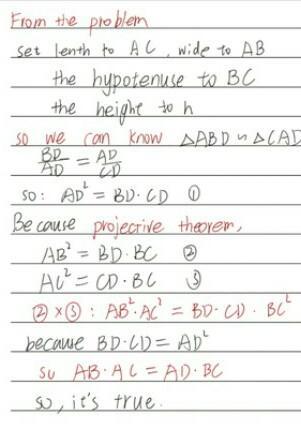 From the problem
set lenth to AC, wide to AB
the hypotenuse to BC
the height to h
so we can know △ABD ∽ △CAD
BD/AD = AD/CD
so: AD² = BD·CD ①
Because projective theorem,
AB² = BD·BC ②
AC² = CD·BC ③
②×③: AB²·AC² = BD·CD·BC²
because BD·CD = AD²
so AB·AC = AD·BC
so, it's true.